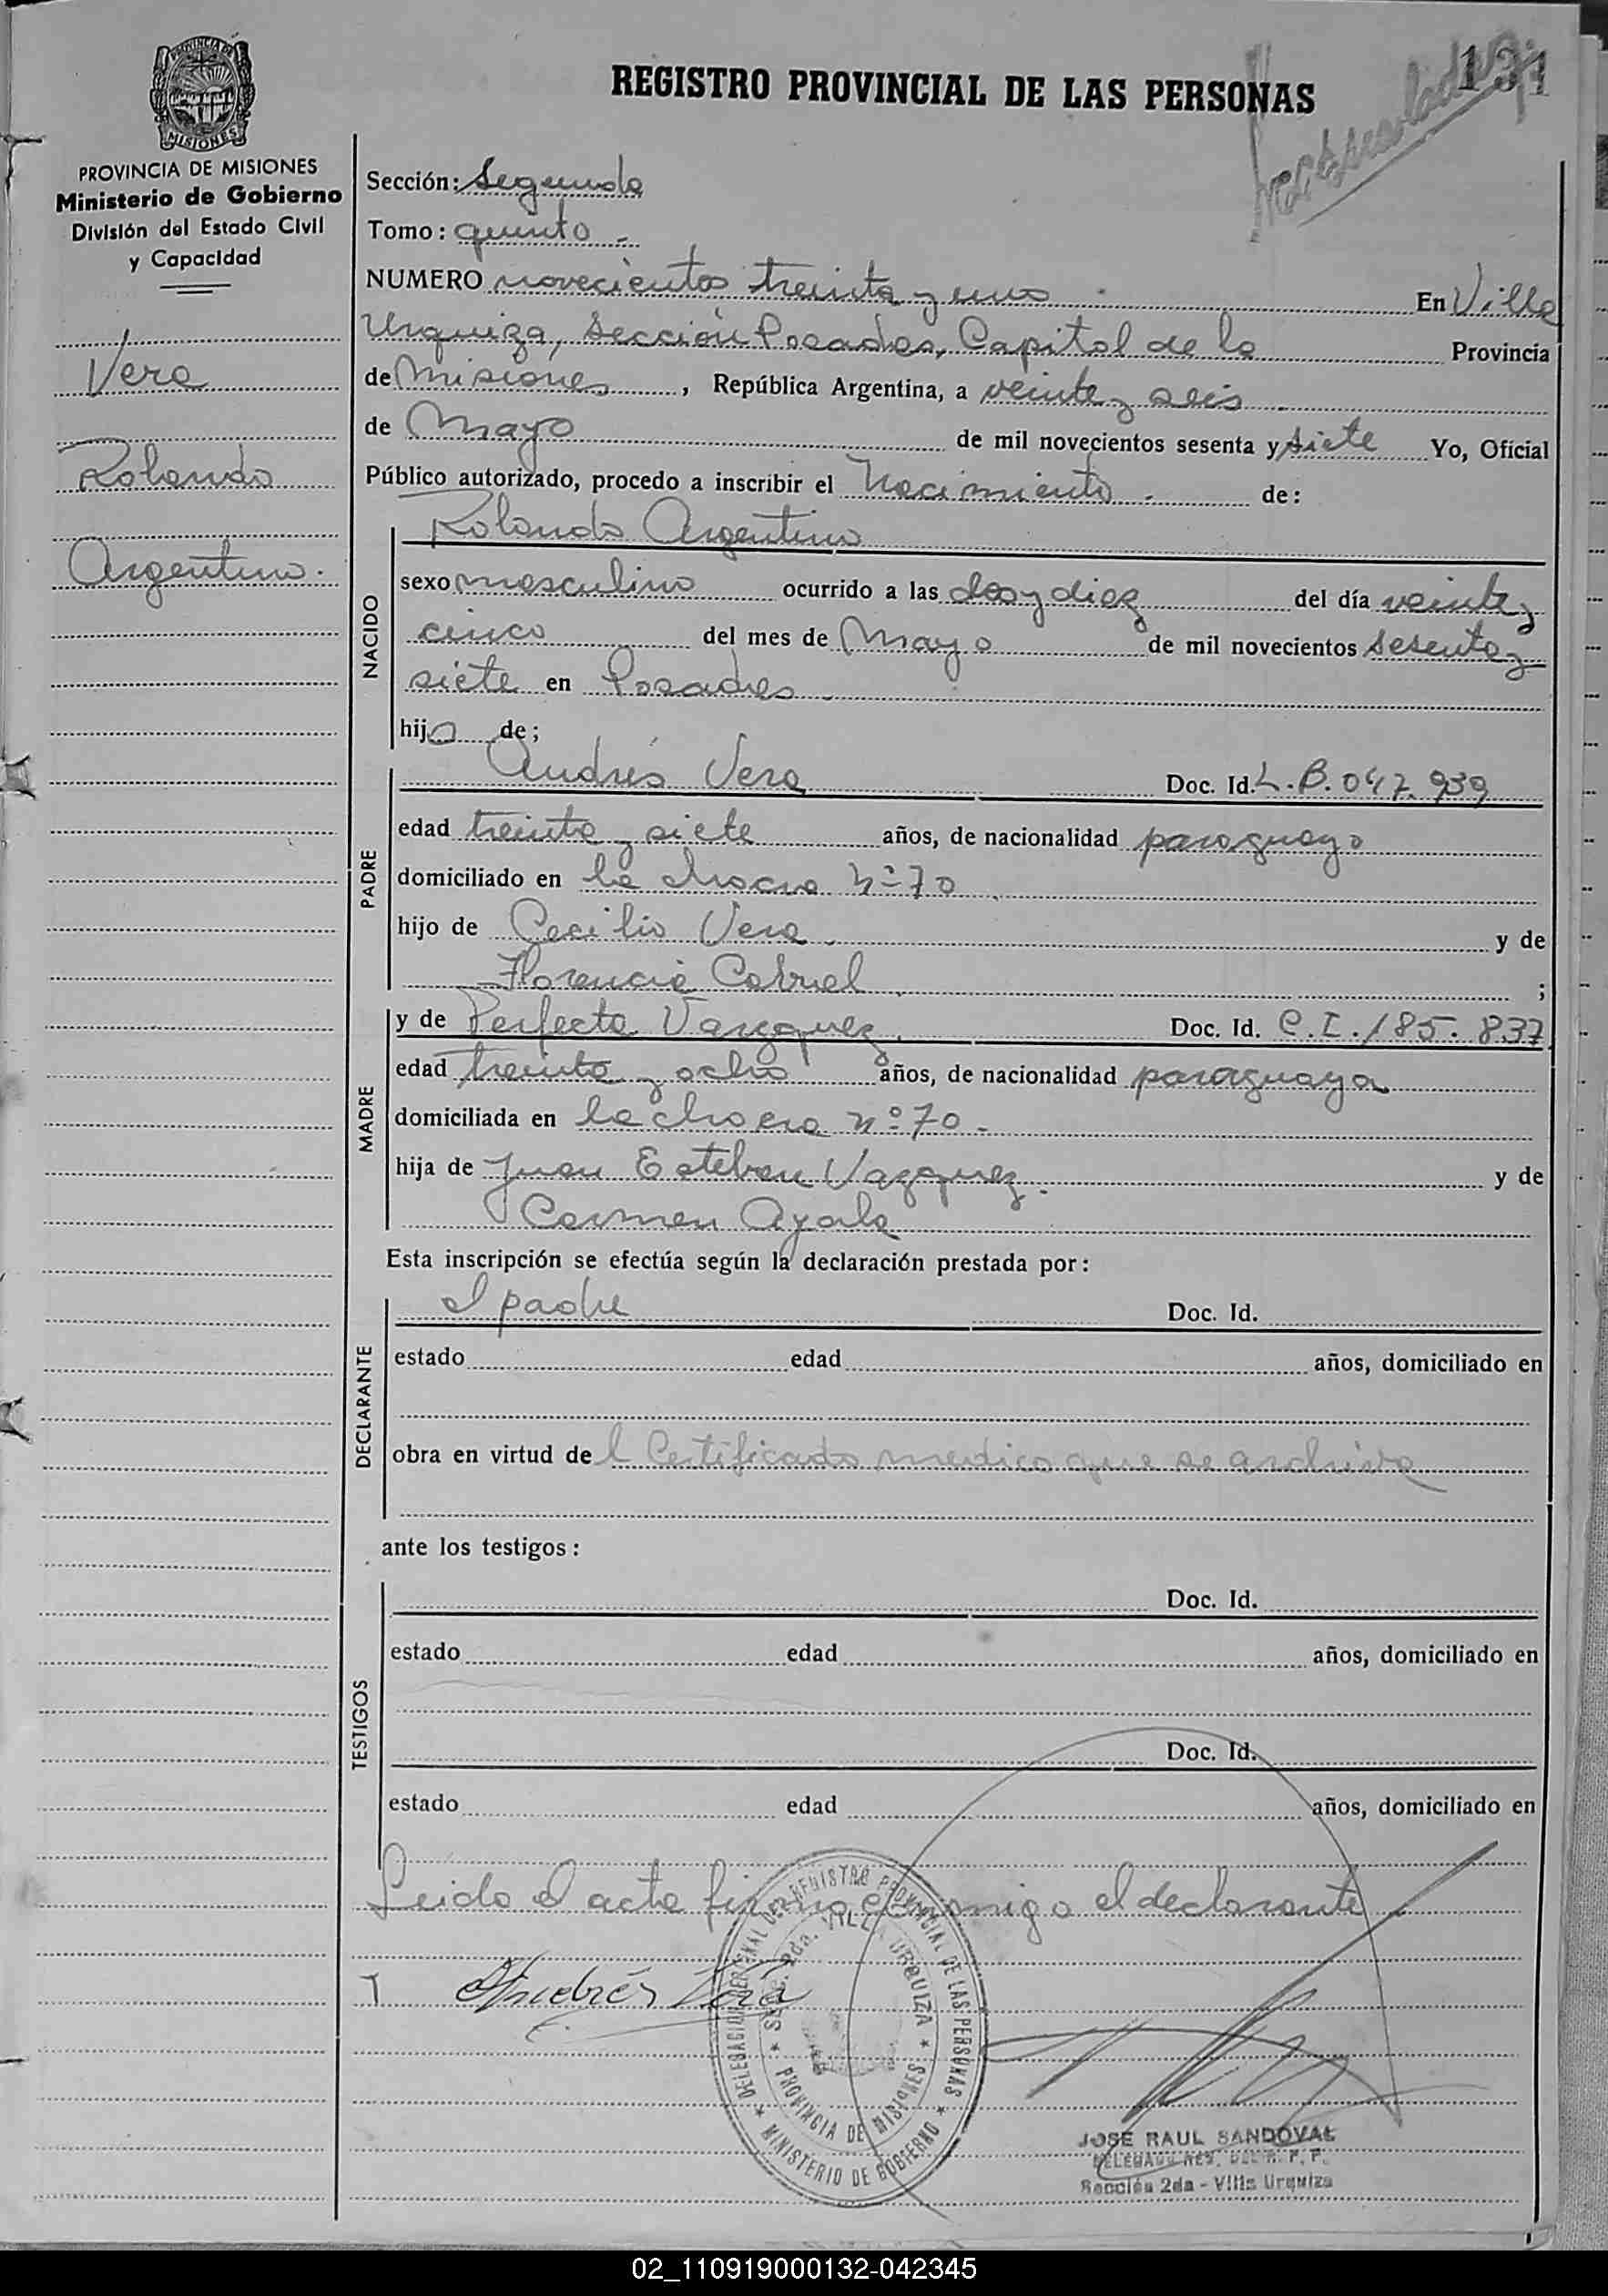 131
REGISTRO PROVINCIAL DE LAS PERSONAS
MISIONES
PROVINCIA DE MISIONES
Ministerio de Gobierno
División del Estado Civil
y Capacidad
Vera
Rolando
Argentino.
Sección: Segunda
Tomo: quinto -
NUMERO novecientos treinta y uno - En Villa
Urquiza, Sección Posadas, Capital de la Provincia
de Misiones, República Argentina, a veinte y seis
de Mayo de mil novecientos sesenta y siete Yo, Oficial
Público autorizado, procedo a inscribir el Nacimiento - de:
Rolando Argentino
NACIDO
sexo masculino ocurrido a las dos y diez del día veinte y
cinco del mes de Mayo de mil novecientos sesenta y
siete en Posadas -
hijo de;
PADRE
Andrés Vera Doc. Id. L.B. 047.939
edad treinta y siete años, de nacionalidad paraguayo
domiciliado en la chacra Nº 70
hijo de Cecilio Vera y de
Florencia Cabriel ;
MADRE
y de Perfecta Vazquez Doc. Id. C.I. 185.837
edad treinta y ocho años, de nacionalidad paraguaya
domiciliada en la chacra nº 70 -
hija de Juan Esteban Vazquez. y de
Carmen Ayala
Esta inscripción se efectúa según la declaración prestada por:
DECLARANTE
el padre Doc. Id.
estado edad años, domiciliado en
obra en virtud del Certificado medico que se archiva
ante los testigos:
TESTIGOS
Doc. Id.
estado edad años, domiciliado en
Doc. Id.
estado edad años, domiciliado en
Leida el acta firma conmigo el declarante
Andrés Vera
REGISTRO PROVINCIAL DE LAS PERSONAS
Sec. 2da. VILLA URQUIZA
PROVINCIA DE MISIONES
MINISTERIO DE GOBIERNO
JOSE RAUL SANDOVAL
Sección 2da - Villa Urquiza
02_110919000132-042345